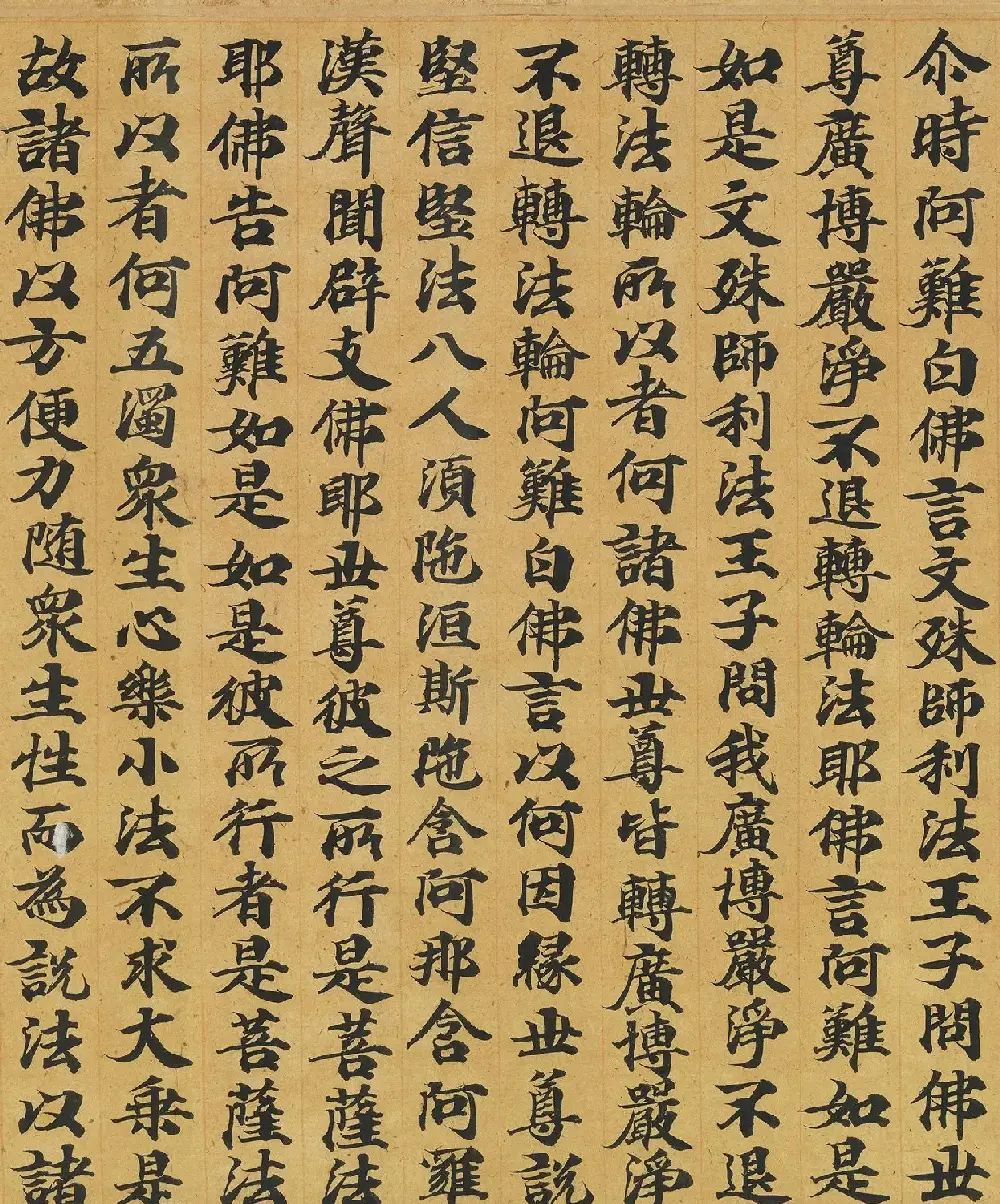 尒時阿難白佛言文殊師利法王子問佛世
尊廣博嚴淨不退轉輪法耶佛言阿難如是
如是文殊師利法王子問我廣博嚴淨不退
轉法輪所以者何諸佛世尊皆轉廣博嚴淨
不退轉法輪阿難白佛言以何因緣世尊說
堅信堅法八人須陁洹斯陁含阿那含阿羅
漢聲聞辟支佛耶世尊彼之所行是菩薩法
耶佛告阿難如是如是彼所行者是菩薩法
所以者何五濁眾生心樂小法不求大乘是
故諸佛以方便力随眾生性而為說法以諸